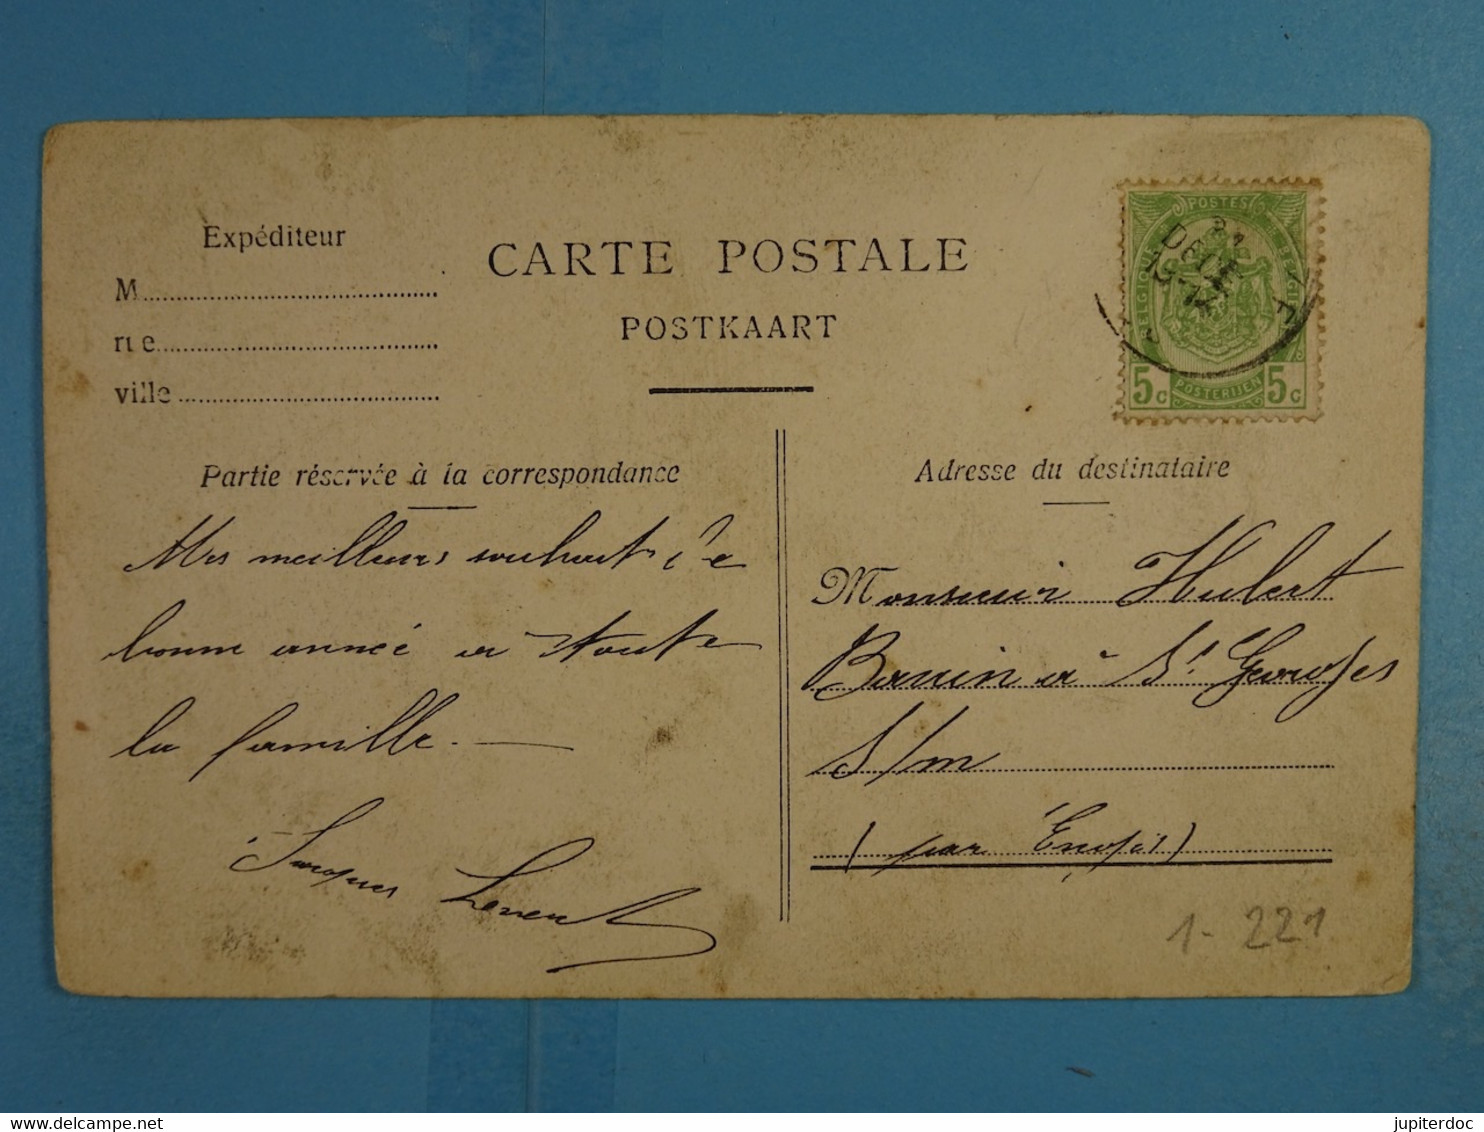 Expéditeur
M
rue
ville
CARTE POSTALE
POSTKAART
POSTES
BELGIQUE
BELGIE
5c POSTERIJEN 5c
Partie réservée à la correspondance
Mes meilleurs souhait de
bonne année a toute
la famille. —
Jacques
Adresse du destinataire
Monsieur Hubert
à St Georges
S/m
(par Engis)
1-221
www.delcampe.net
jupiterdoc